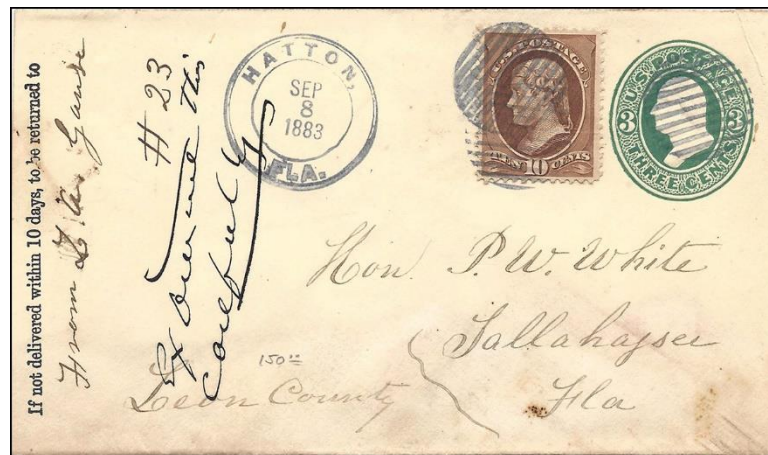 If not delivered within 10 days, to be returned to
From
# 23
Examine this
carefully
HATTON,
SEP
8
1883
FLA.
U.S. POSTAGE
TEN 10 CENTS
U.S. POSTAGE
3 3
THREE CENTS
Hon. P. W. White
Tallahassee
Fla
150⁰⁰
Leon County